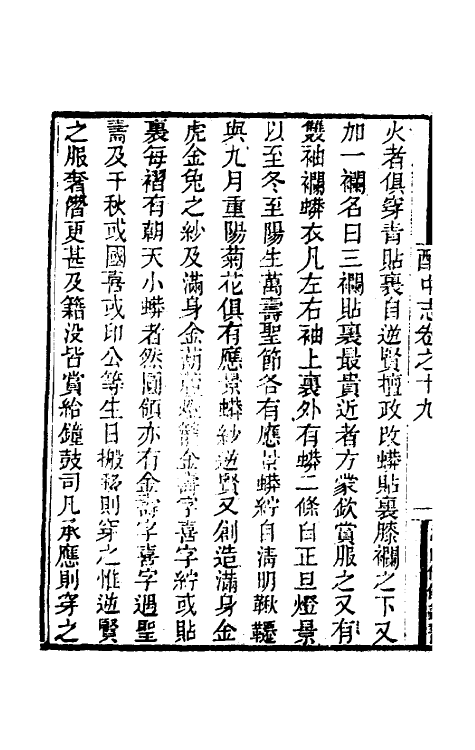 火者俱穿青貼裏自逆賢擅政改蟒貼裏膝襴之下又
加一襴名曰三襴貼裏最貴近者方蒙欽賞服之又有
雙袖襴蟒衣凡左右袖上裏外有蟒二條自正旦燈景
以至冬至陽生萬壽聖節各有應景蟒紵自清明鞦韆
與九月重陽菊花俱有應景蟒紗逆賢又創造滿身金
虎金兔之紗及滿身金葫蘆燈籠金壽字喜字紵或貼
裏每褶有朝天小蟒者然圓領亦有金壽字喜字遇聖
壽及千秋或國喜或印公等生日搬移則穿之惟逆賢
之服奢僭更甚及籍沒皆賞給鐘鼓司凡承應則穿之
酌中志卷之十九